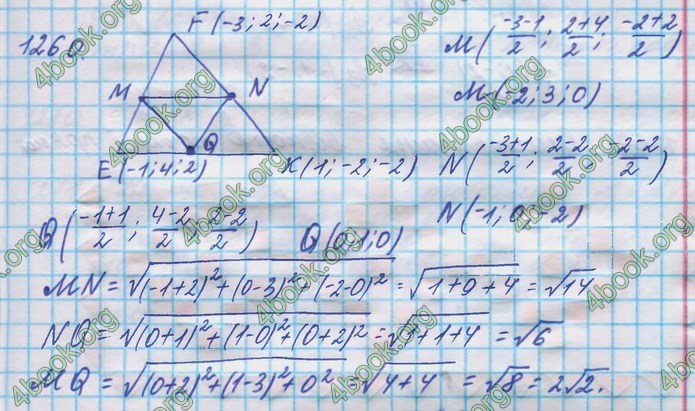 1260.
F(-3; 2; -2)
M
N
Q
E(-1; 4; 2)
K(1; -2; -2)
M((-3-1)/2; (2+4)/2; (-2+2)/2)
M(-2; 3; 0)
N((-3+1)/2; (2-2)/2; (-2-2)/2)
N(-1; 0; -2)
Q((-1+1)/2; (4-2)/2; (2-2)/2) Q(0; 1; 0)
MN = √((-1+2)² + (0-3)² + (-2-0)²) = √(1+9+4) = √14
NQ = √((0+1)² + (1-0)² + (0+2)²) = √(1+1+4) = √6
MQ = √((0+2)² + (1-3)² + 0²) = √(4+4) = √8 = 2√2.
4book.org